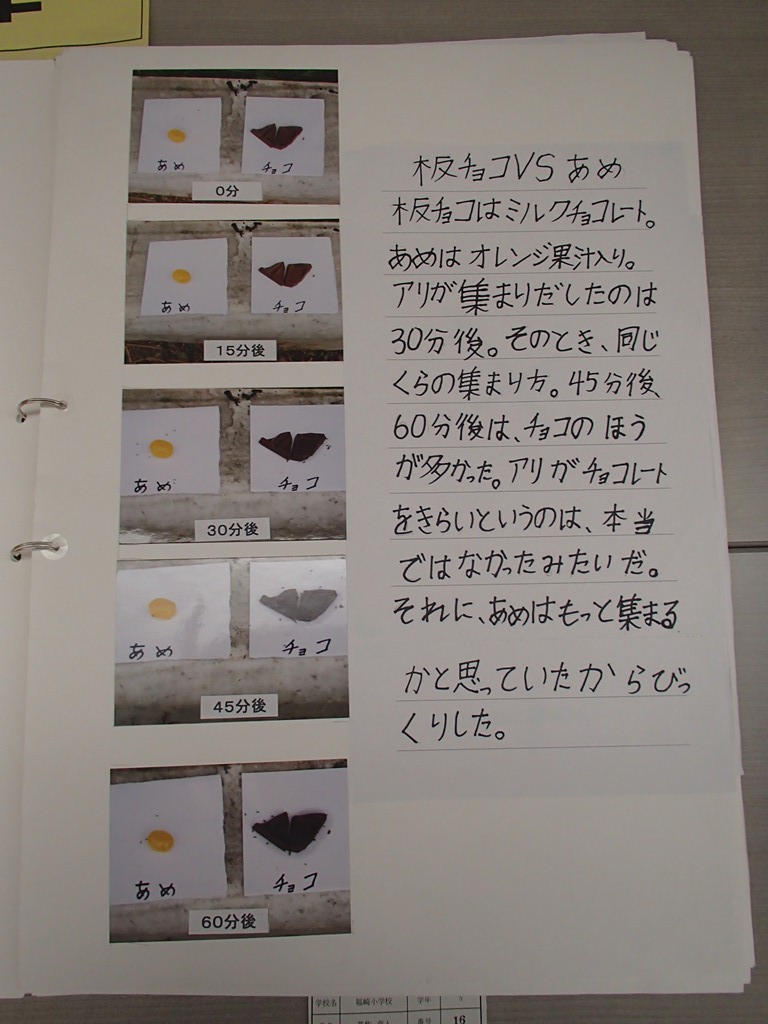 あめ
チョコ
0分
あめ
チョコ
15分後
あめ
チョコ
30分後
あめ
チョコ
45分後
あめ
チョコ
60分後
板チョコVSあめ
板チョコはミルクチョコレート。
あめはオレンジ果汁入り。
アリが集まりだしたのは
30分後。そのとき、同じ
くらの集まり方。45分後、
60分後は、チョコのほう
が多かった。アリがチョコレート
をきらいというのは、本当
ではなかったみたいだ。
それに、あめはもっと集まる
かと思っていたからびっ
くりした。
学校名 福崎小学校 学年
16